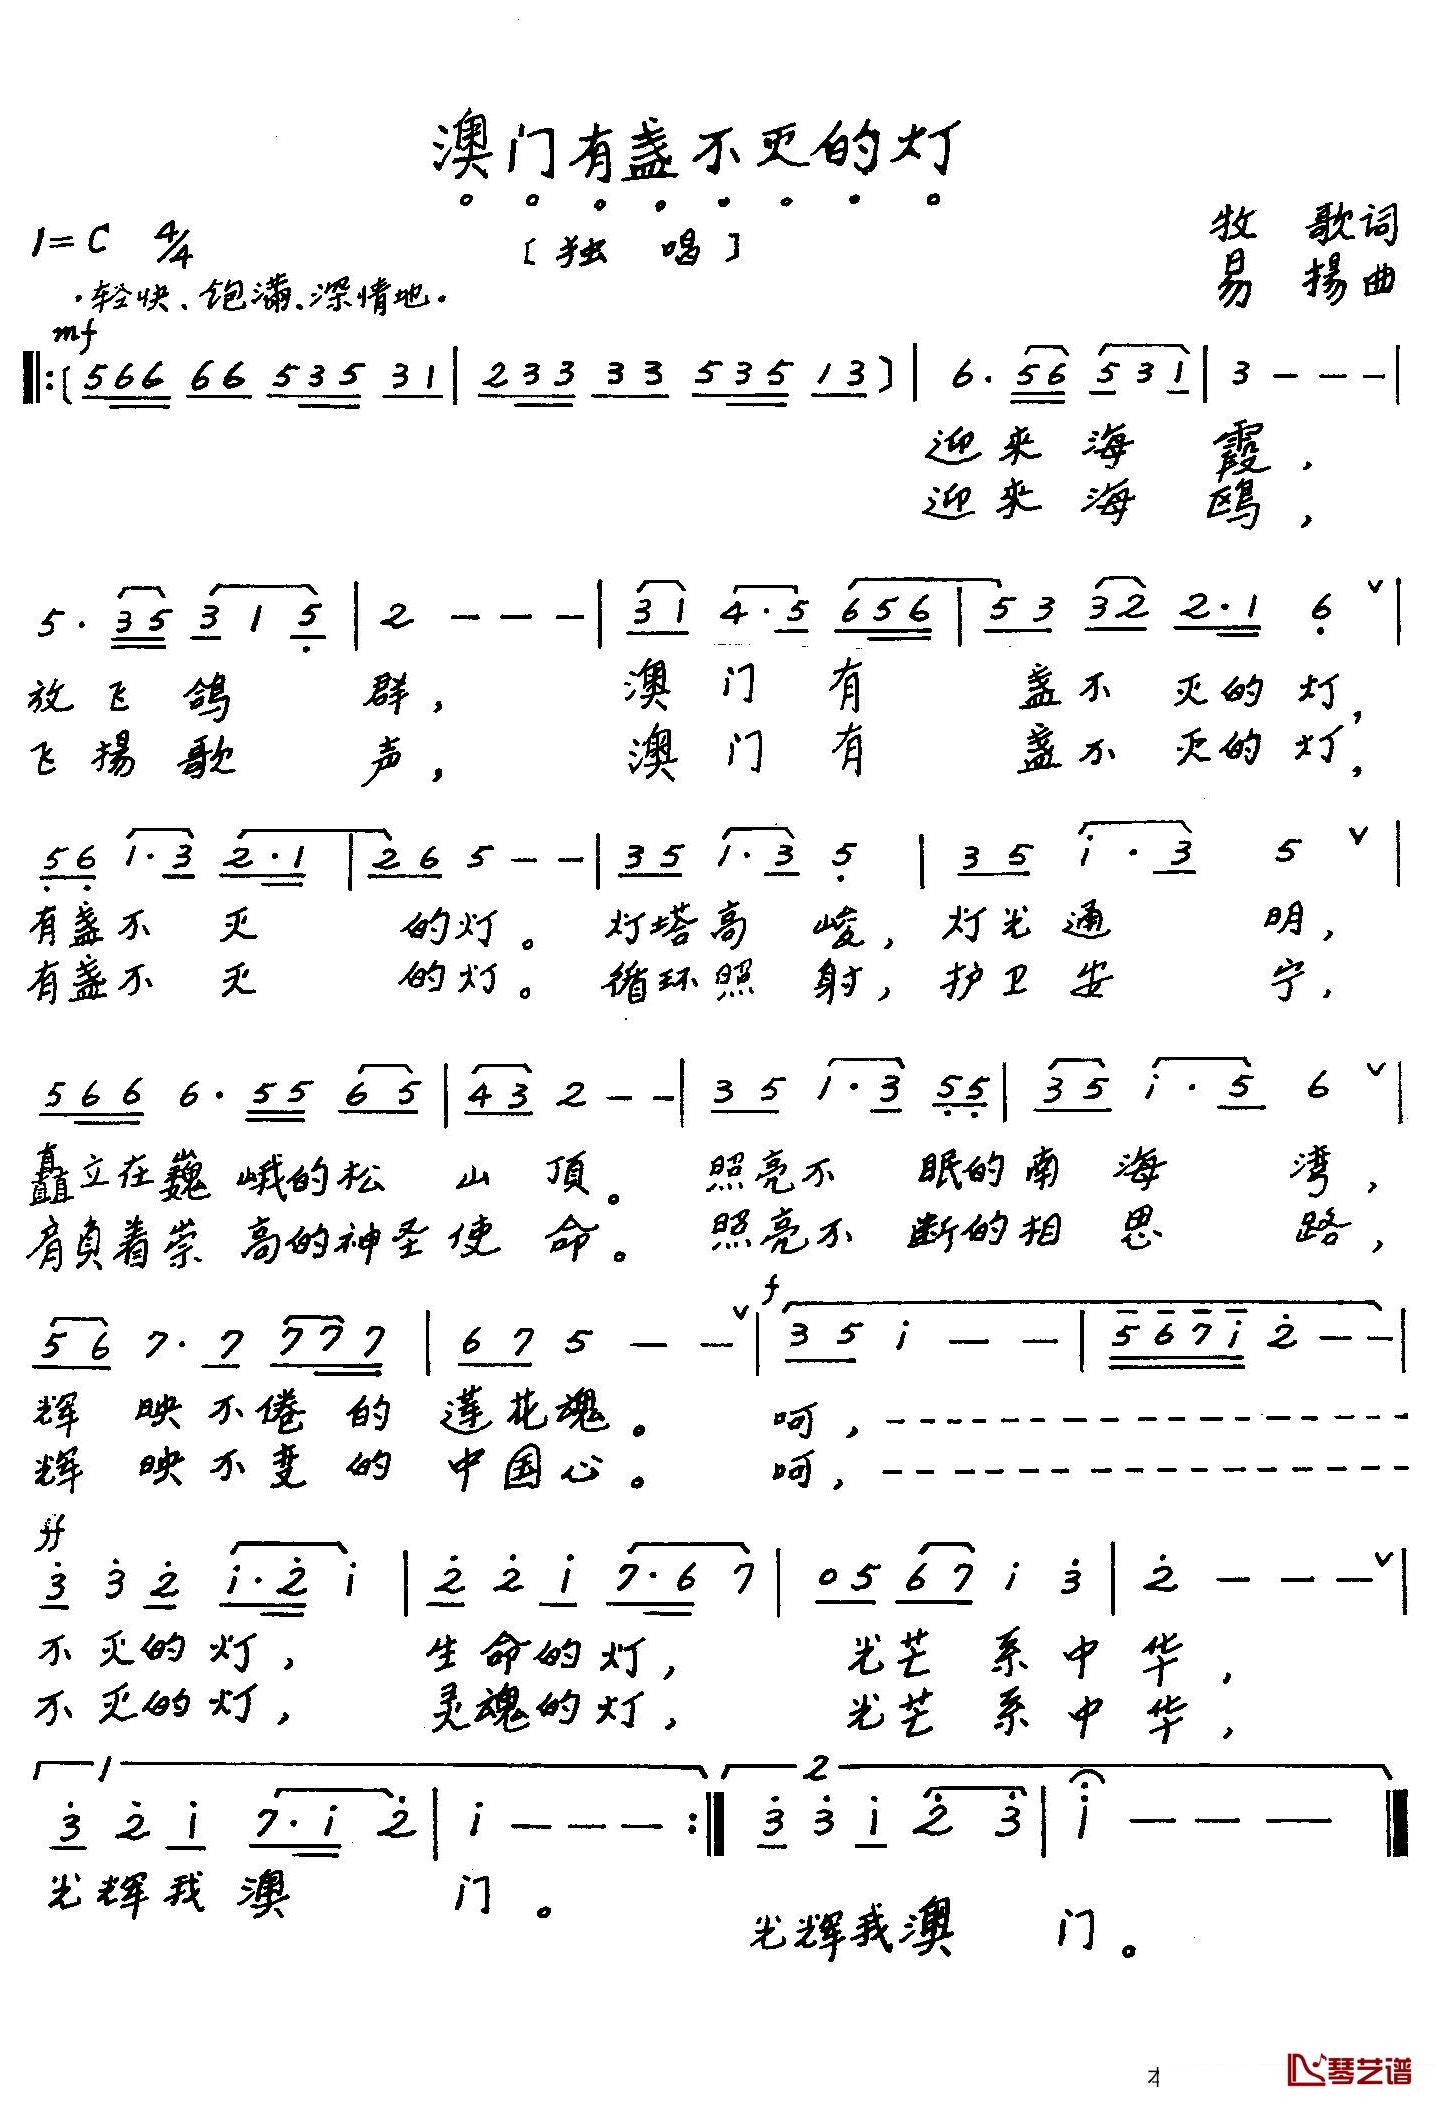 澳门有盏不灭的灯
1=C 4/4
[独 唱]
牧 歌词
易 揚曲
·轻快、饱满、深情地·
mf
‖:(566 66 535 31 | 233 33 535 13) | 6· 56 531 | 3 - - - |
迎来海霞,
迎来海鸥,
5· 35 315 | 2 - - - | 31 4·5 656 | 53 32 2·1 6 ∨ |
放飞鸽群, 澳门有 盏不灭的灯,
飞揚歌声, 澳门有 盏不灭的灯,
56 1·3 2·1 | 26 5 - - | 35 1·3 5 | 35 i·3 5 ∨ |
有盏不灭 的灯。 灯塔高峻, 灯光通明,
有盏不灭 的灯。 循环照射, 护卫安宁,
566 6·55 65 | 43 2 - - | 35 1·3 55 | 35 i·5 6 ∨ |
矗立在巍峨的松山顶。 照亮不眠的南海湾,
肩负着崇高的神圣使命。 照亮不断的相思路,
f
56 7·7 777 | 67 5 - - ∨ | 35 i - - | 567i 2̇ - - |
辉映不倦的莲花魂。 呵, - - - - - - - - - - - -
辉映不变的中国心。 呵, - - - - - - - - - - - -
ff
3̇ 3̇ 2̇ i·2̇ i | 2̇ 2̇ i 7·6 7 | 05 67 i 3̇ | 2̇ - - - ∨ |
不灭的灯, 生命的灯, 光芒系中华,
不灭的灯, 灵魂的灯, 光芒系中华,
1 2
3̇ 2̇ i 7·i 2̇ | i - - - :‖ 3̇ 3̇ i 2̇ 3̇ | i - - - ‖
光辉我澳门。
光辉我澳门。
琴艺谱